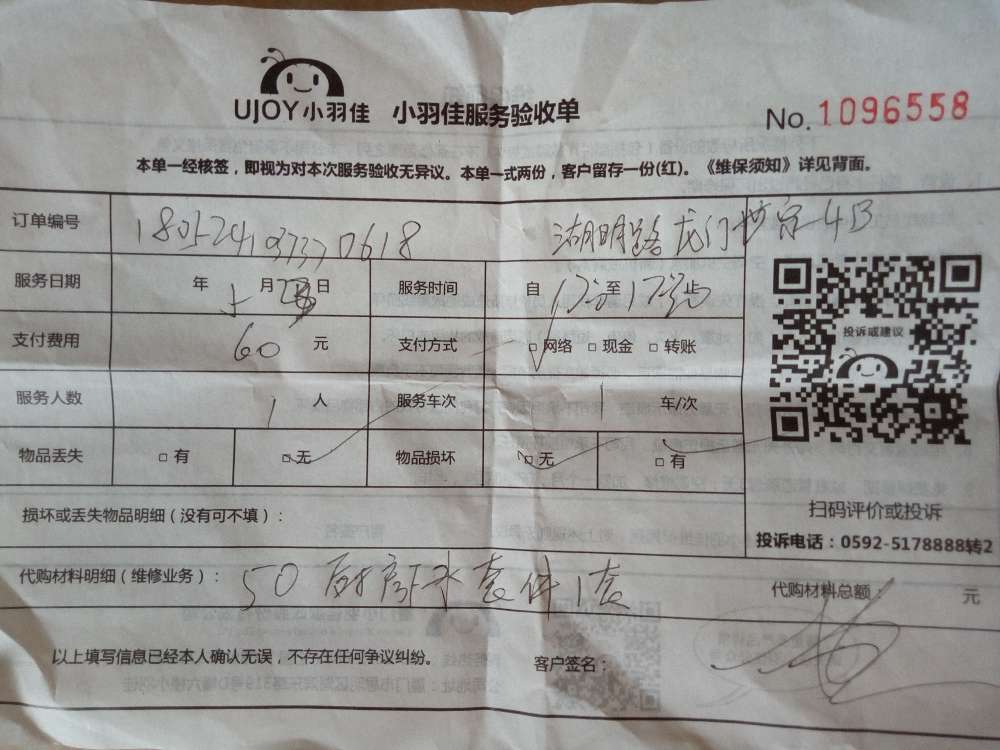 UJOY小羽佳 小羽佳服务验收单
No. 1096558
本单一经核签，即视为对本次服务验收无异议。本单一式两份，客户留存一份(红)。《维保须知》详见背面。
订单编号 湖明路龙门世家4B
服务日期 年 月 日 服务时间 自 至 止
支付费用 60 元 支付方式 □网络 □现金 □转账
服务人数 1 人 服务车次 1 车/次
物品丢失 □有 □无 物品损坏 □无 □有
投诉或建议
扫码评价或投诉
投诉电话：0592-5178888转2
损坏或丢失物品明细（没有可不填）：
代购材料明细（维修业务）： 50 厨房下水套件1套
代购材料总额： 元
以上填写信息已经本人确认无误，不存在任何争议纠纷。
客户签名：